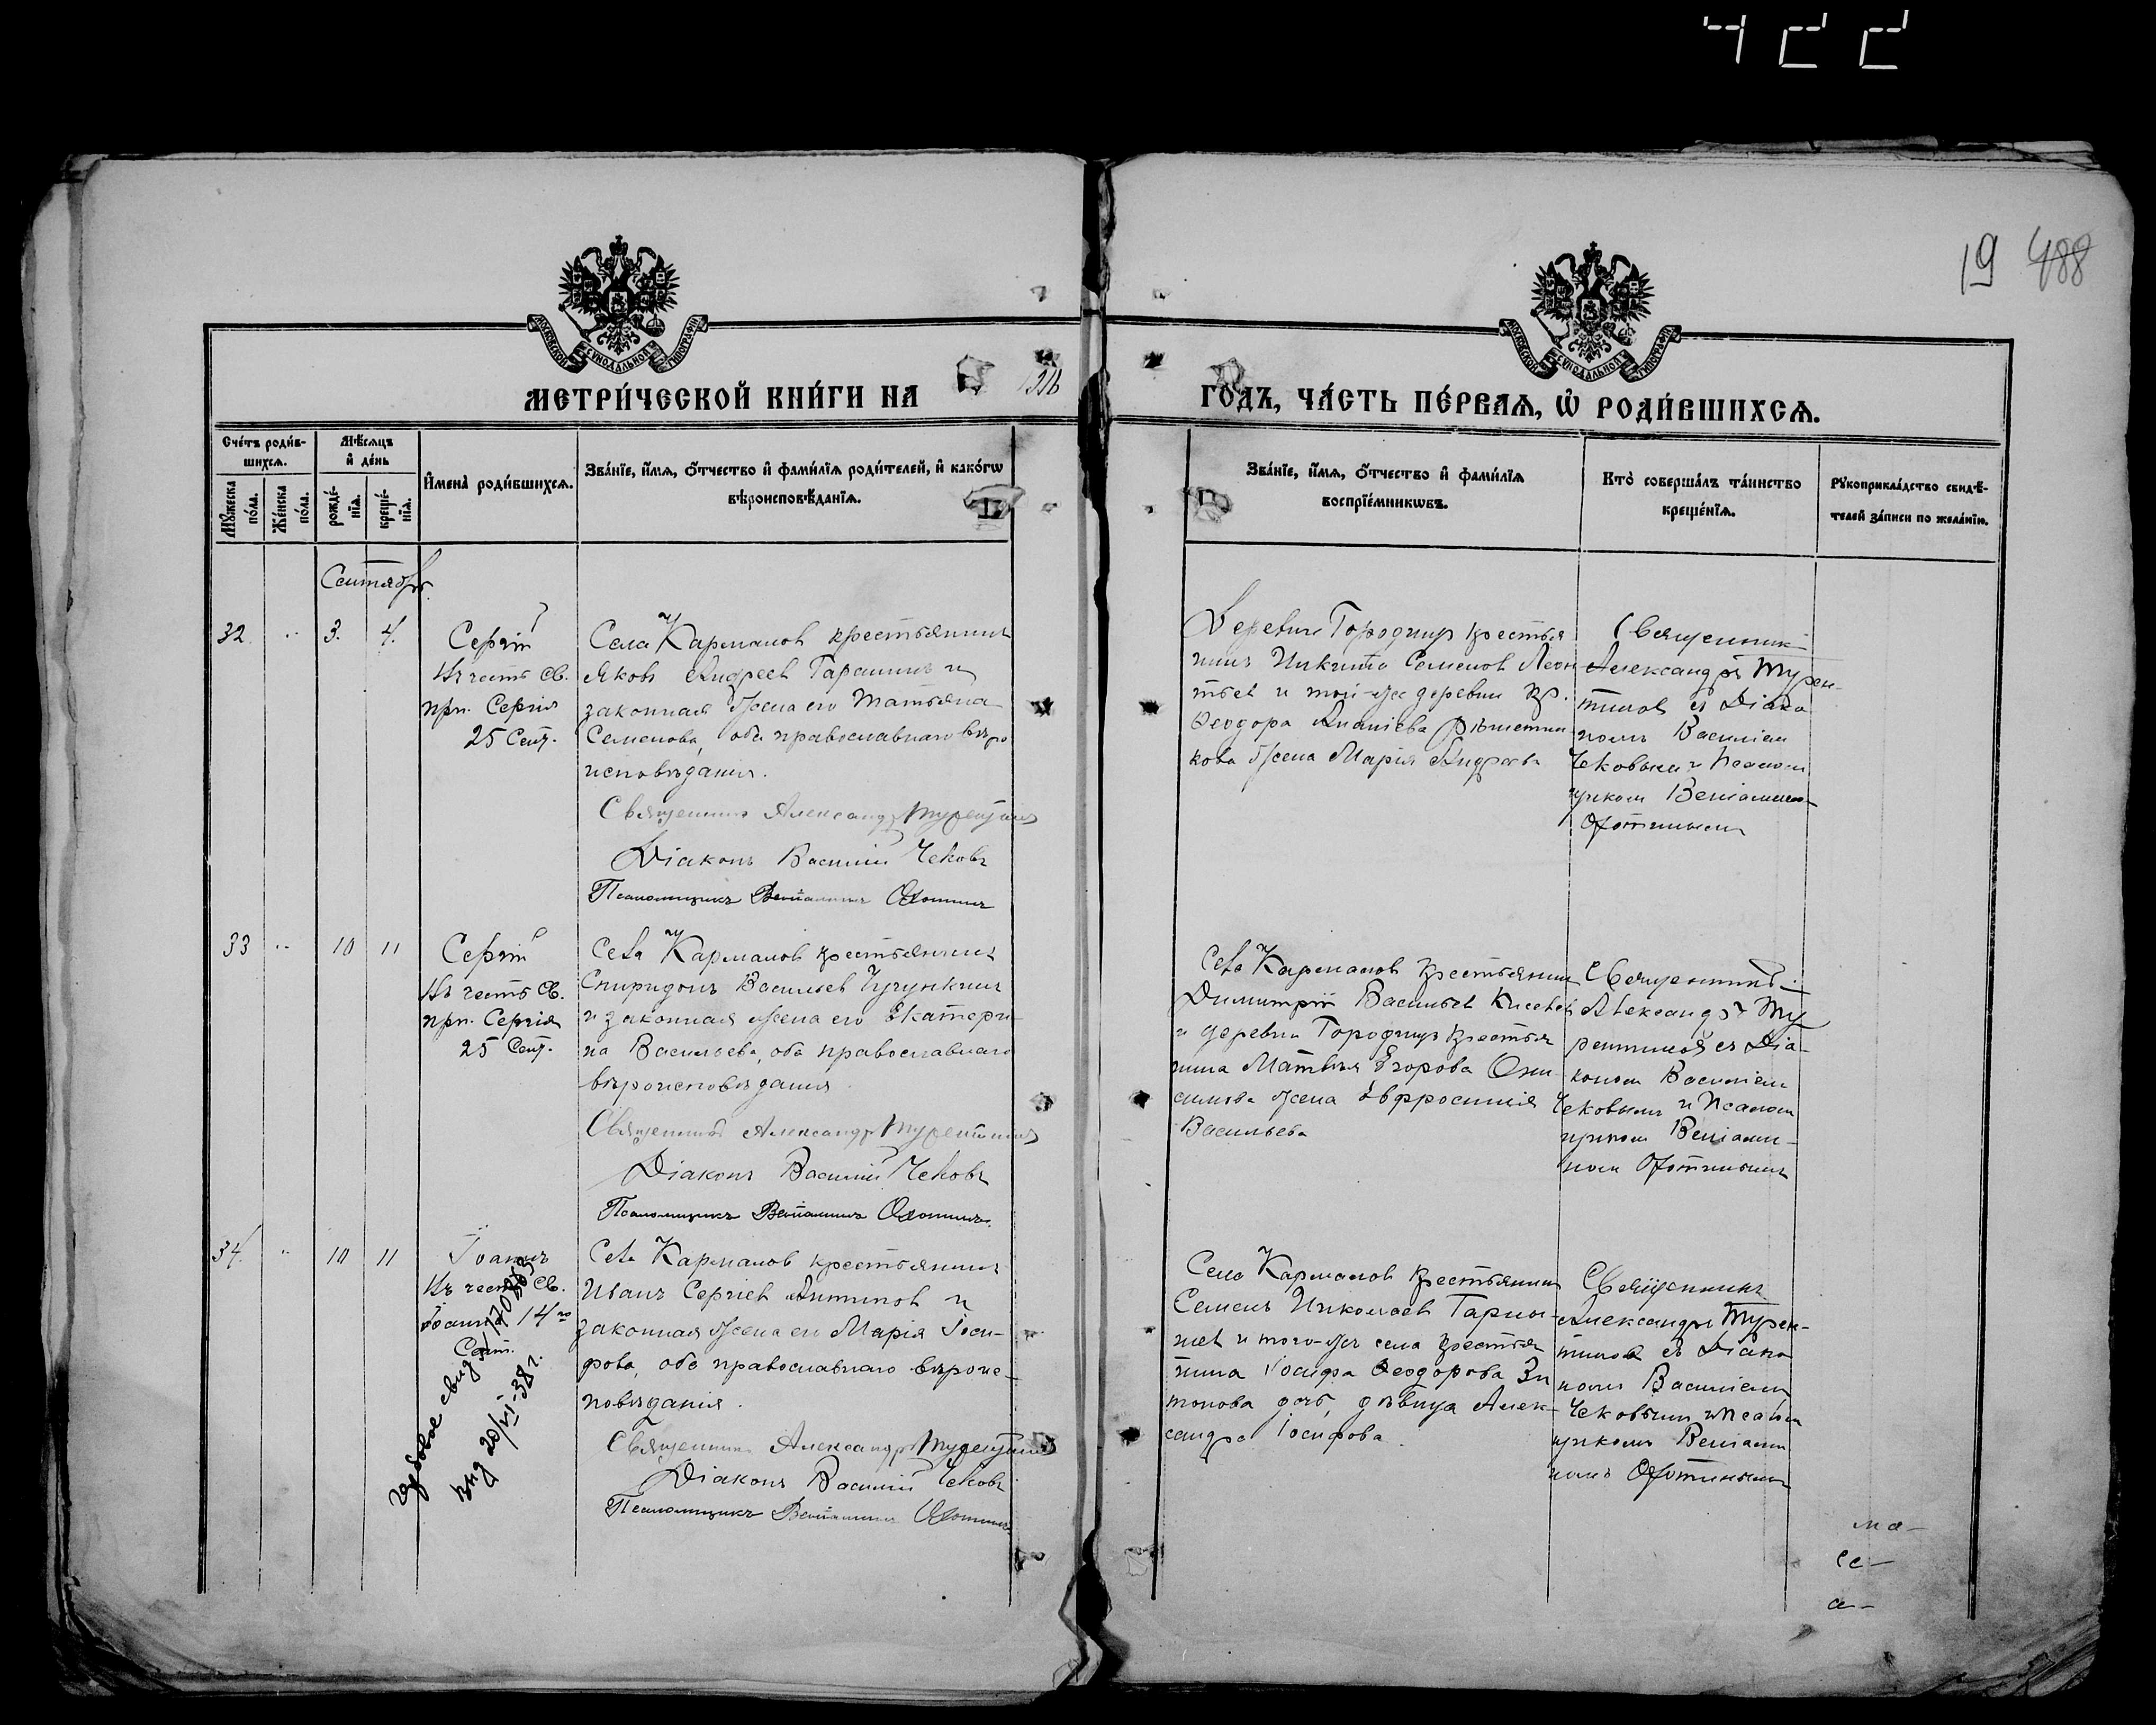 422
19 488
МОСКОВСКОЙ СѴНОДАЛЬНОЙ ТИПОГРАФІИ
МОСКОВСКОЙ СѴНОДАЛЬНОЙ ТИПОГРАФІИ
МЕТРИ́ЧЕСКОЙ КНИ́ГИ НА 1916
ГО́ДЪ, ЧА́СТЬ ПЕ́РВАѦ, Ѡ҆ РОДИ́ВШИХСѦ.
Сче́тъ роди́в-
шихсѧ.
Мꙋ́жеска по́ла.
Же́нска по́ла.
Мѣ́сѧцъ
и҆ де́нь
рожде́-
нїѧ.
креще́-
нїѧ.
И҆мена̀ роди́вшихсѧ.
Зва́нїе, и҆́мѧ, ѻ҆́тчество и҆ фами́лїѧ роди́телей, и҆ како́гѡ
вѣроисповѣ́данїѧ.
Зва́нїе, и҆́мѧ, ѻ҆́тчество и҆ фами́лїѧ
воспрїе́мникѡвъ.
Кто̀ соверша́лъ та́инство
креще́нїѧ.
Рꙋкоприкла́дство свидѣ́-
телей за́писи по жела́нїю.
Сентябрь
32 " 3. 4.
Сергій
Въ честь св.
прп. Сергія
25 Сент.
Села Карманов крестьянинъ
Яковъ Андреев Гаранинъ и
законная жена его Татьяна
Семенова, оба православнаго вѣро
исповѣданія.
Священникъ Александръ Турентинов
Діаконъ Василій Чековъ
Псаломщикъ Веніаминъ Охотинъ
Деревни Городищъ крестья
нинъ Никита Семенов Леон
тьев и той-же деревни кр.
Ѳеодора Ананіева Рѣшетни
кова жена Марія Андреева
Священник
Александръ Турен-
тинов съ Діако
номъ Василіем
Чековым и Псалом
щиком Веніамино
Охотиным
33 " 10 11
Сергій
Въ честь св.
прп. Сергія
25 Сент.
Села Карманов крестьянинъ
Спиридонъ Васильев Чугункин
и законная жена его Екатери
на Васильева, оба православнаго
вѣроисповѣданія
Священникъ Александръ Турентинов
Діаконъ Василій Чековъ
Псаломщикъ Веніаминъ Охотинъ.
Села Карманов крестьянин
Димитрій Васильев Киселев
и деревни Городищъ крестья
нина Матвѣя Егорова Они
симова жена Евфросинія
Васильева
Священникъ
Александръ Ту
рентинов съ Діа-
коном Василіем
Чековымъ и Псалом
щиком Веніами-
ном Охотинымъ
34. " 10 11
Іоаннъ
Въ честь св.
Іоанна 14го
Сент.
Гербовое свид.
выд 20/VI-38 г.
Села Карманов крестьянинъ
Иванъ Сергіев Антипов и
законная жена его Марія Іоси-
фова, оба православнаго вѣроис-
повѣданія.
Священникъ Александръ Турентинов
Діаконъ Василій Чековъ
Псаломщикъ Веніаминъ Охотинъ
Села Карманов крестьянин
Семенъ Николаев Гарны-
шев и того-же села крестья
нина Іосифа Ѳеодорова Зи
тонова дочь, дѣвица Алек-
сандра Іосифова.
Священникъ
Александръ Турен-
тинов съ Діако
номъ Василіем
Чековым и Псалом
щикомъ Веніами
номъ Охотиным
ма-
се-
а-